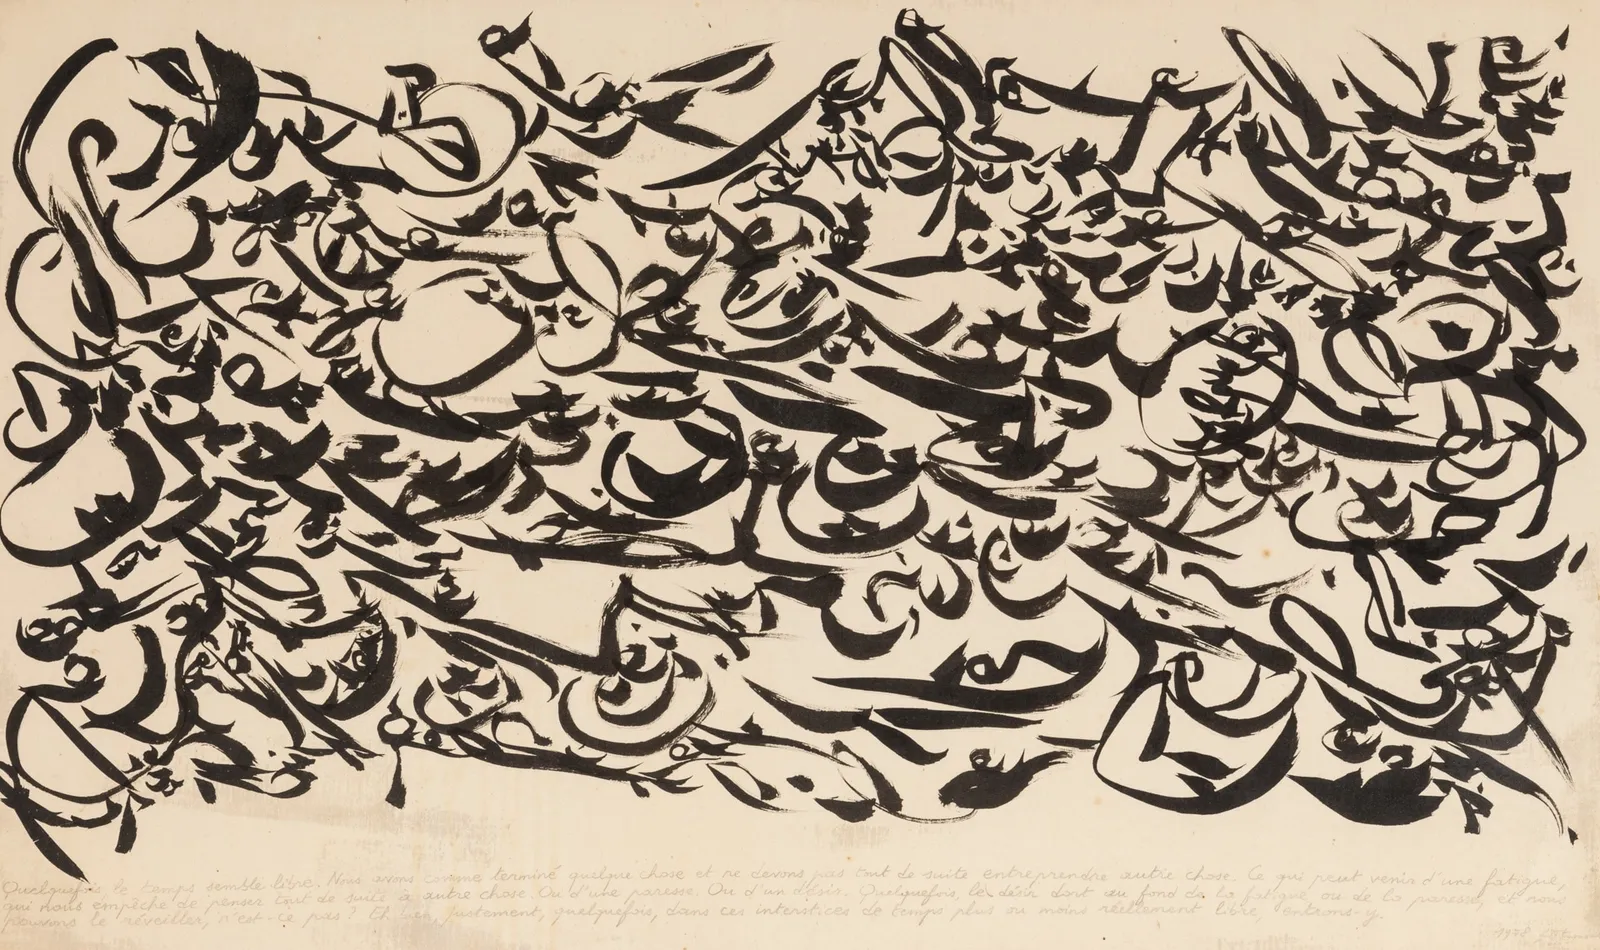 Quelquefois le temps semble libre. Nous avons comme terminé quelque chose et ne devons pas tout de suite entreprendre autre chose. Ce qui peut venir d'une fatigue,
qui nous empêche de penser tout de suite à autre chose. Ou d'une paresse. Ou d'un désir. Quelquefois, le désir dort au fond de la fatigue ou de la paresse, et nous
pouvons le réveiller, n'est-ce pas ? Eh bien, justement, quelquefois, dans ces interstices de temps plus ou moins réellement libre, entrons-y.
1978